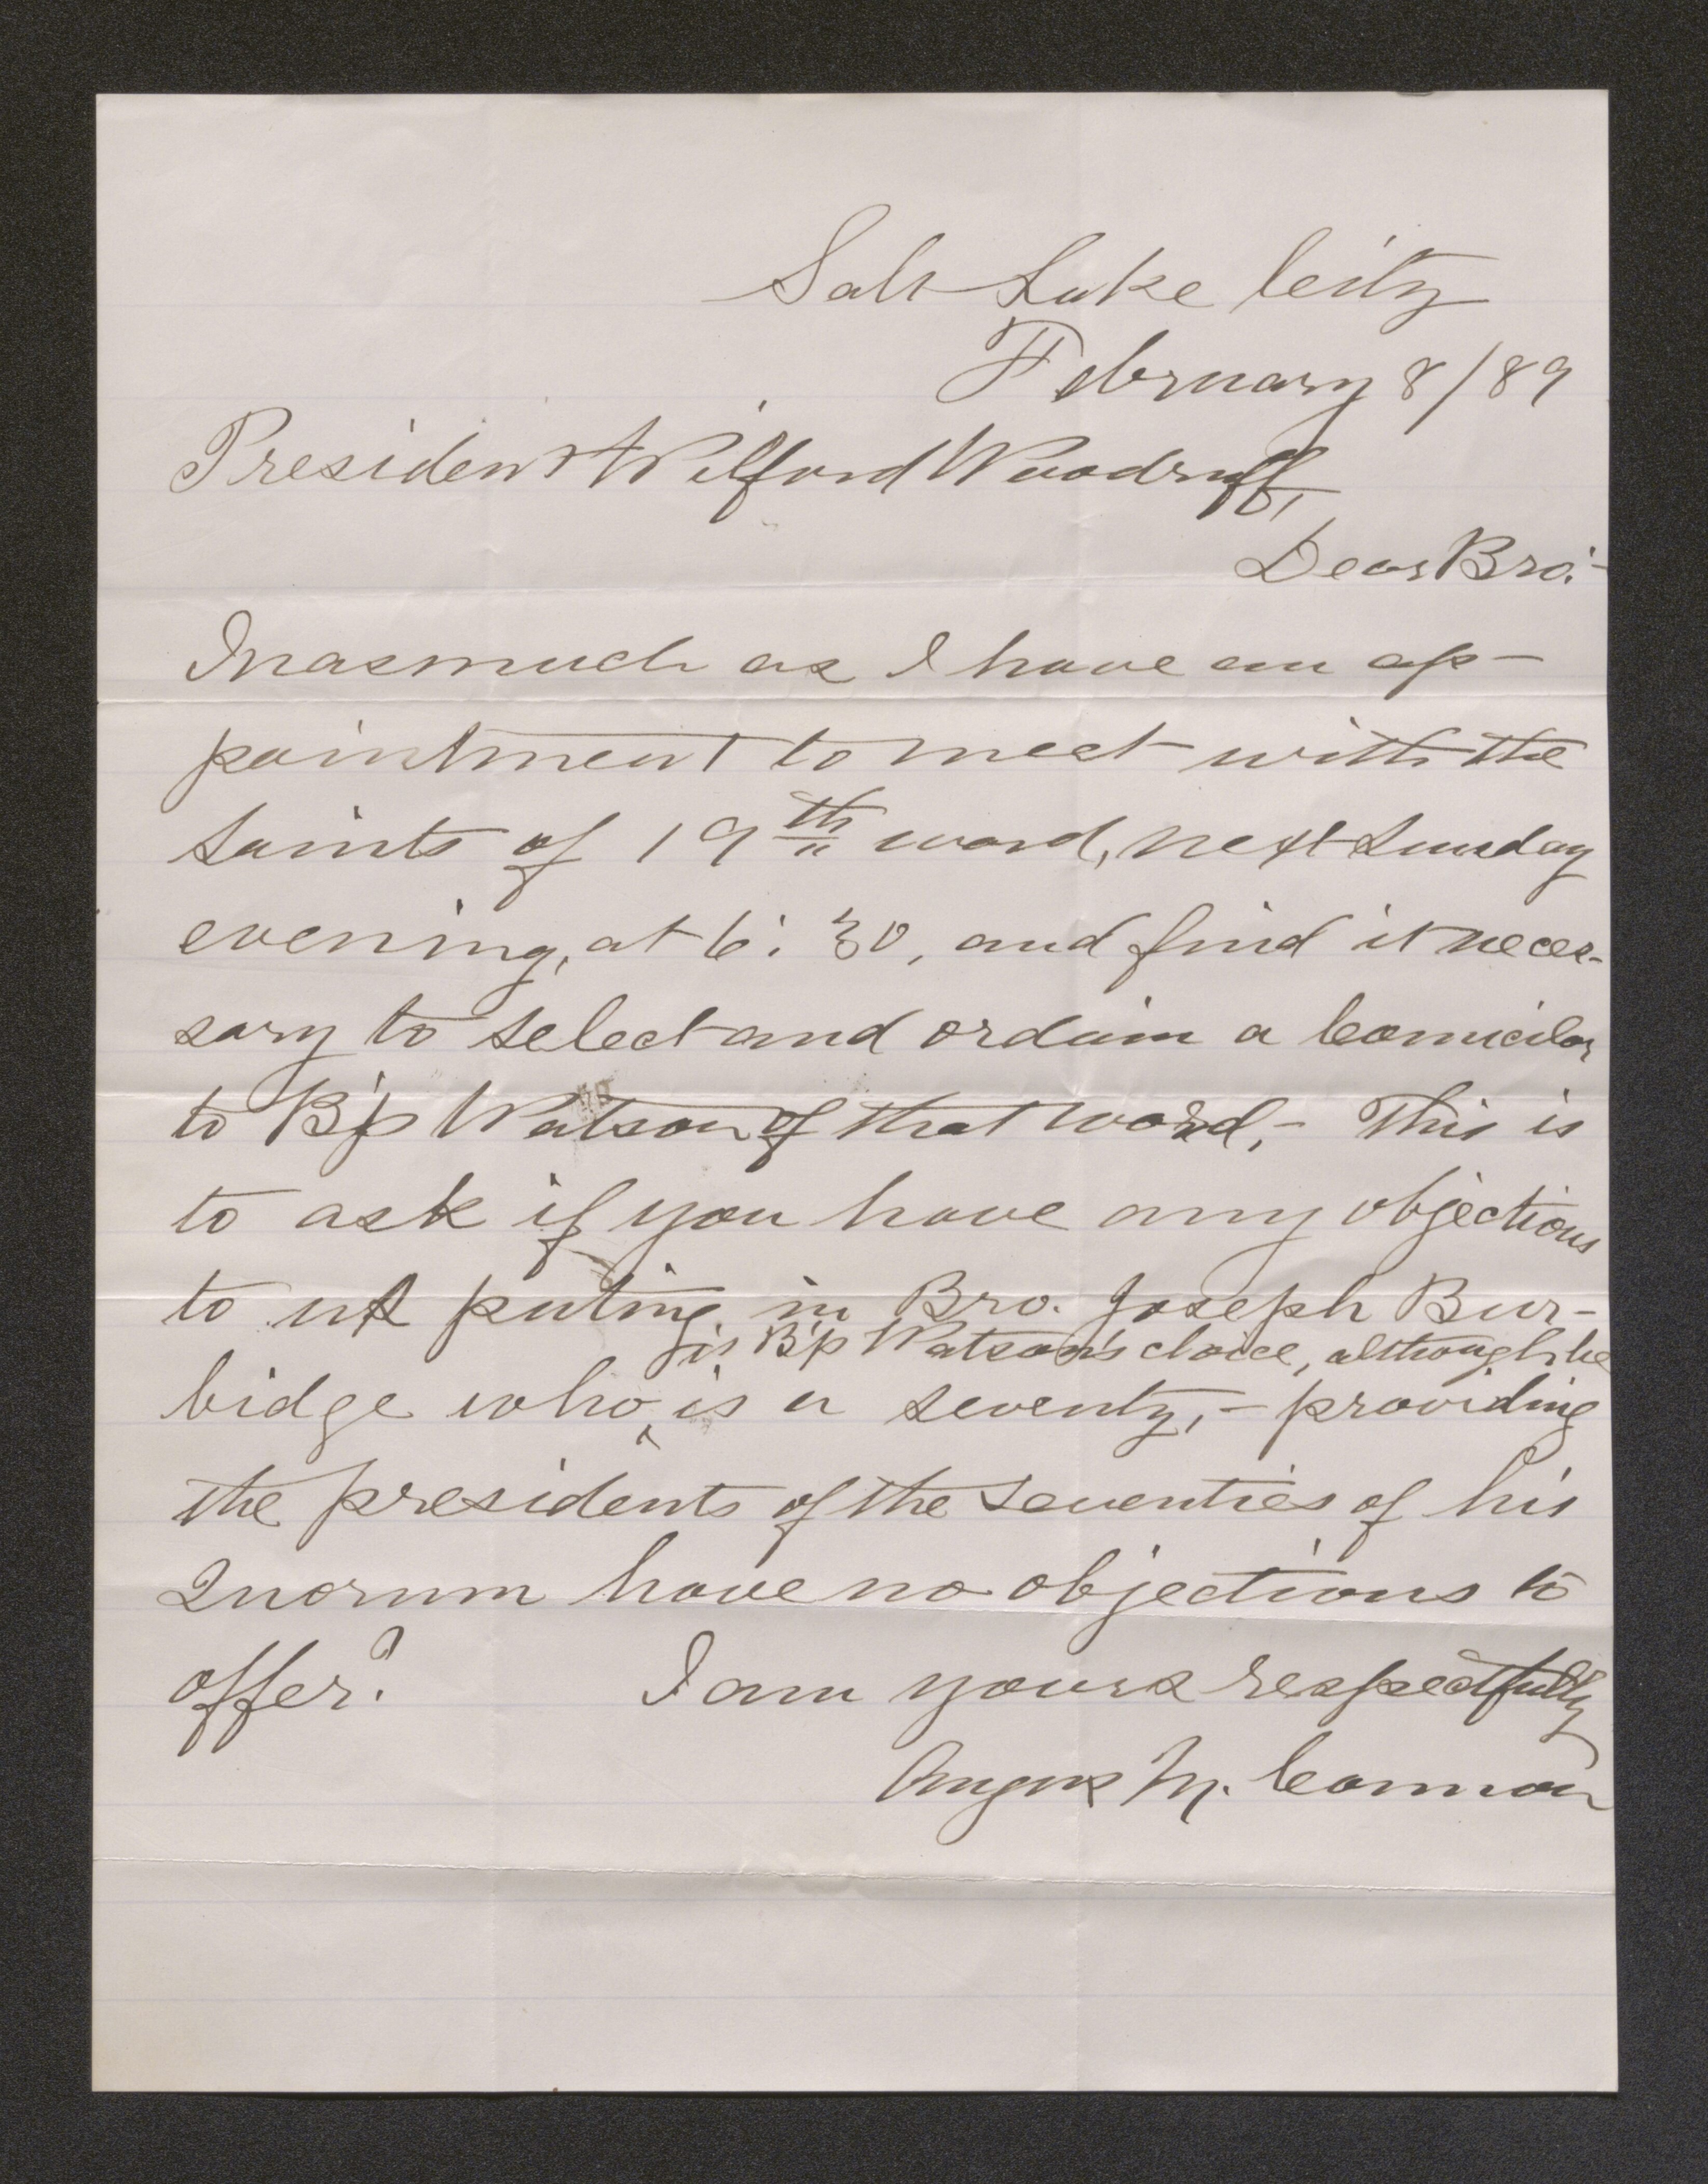 Salt Lake City
February 8/89
President Wilford Woodruff,
Dear Bro:-
Inasmuch as I have an ap-
pointment to meet with the
Saints of 19th ward, next Sunday
evening, at 6:30, and find it neces-
sary to select and ordain a Councilor
to B'p Watson of that ward,- This is
to ask if you have any objections
to us puting in Bro. Joseph Bur-
is B'p Watson's choice, although he
bidge who ^ is a seventy,- providing
the presidents of the Seventies of his
Quorum have no objections to
offer? I am yours respectfully
Angus M. Cannon